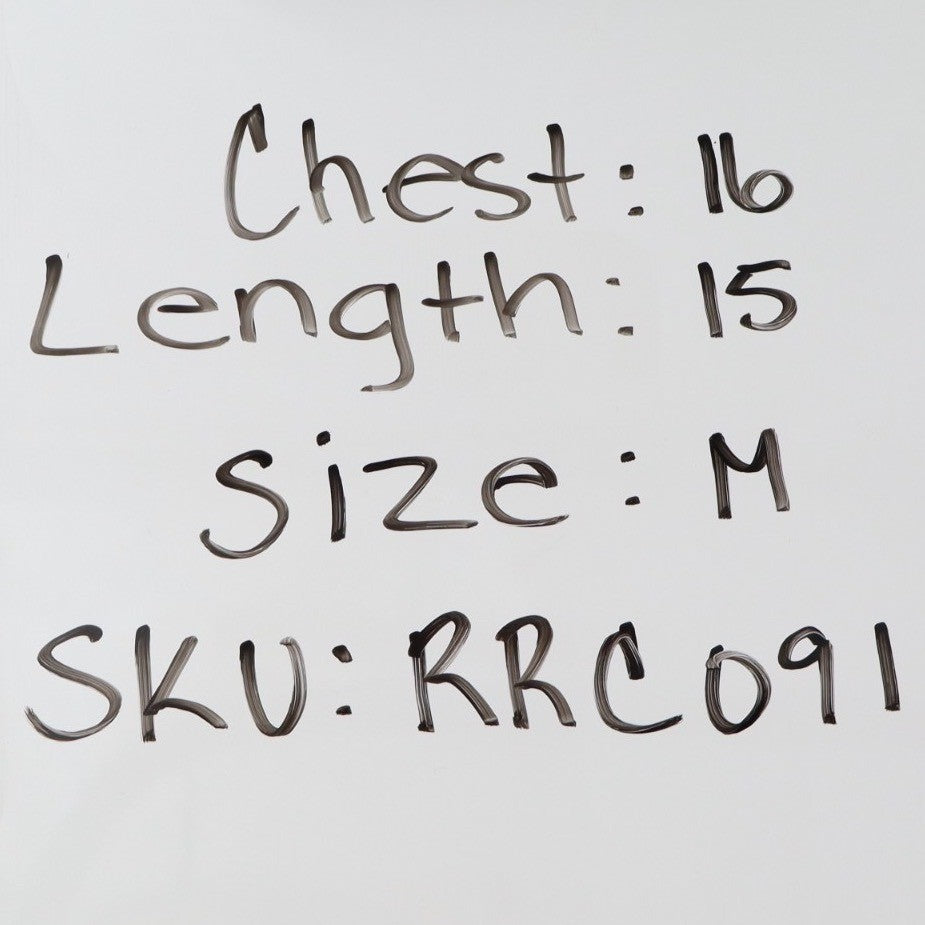 Chest: 16
Length: 15
Size: M
SKU: RRC091